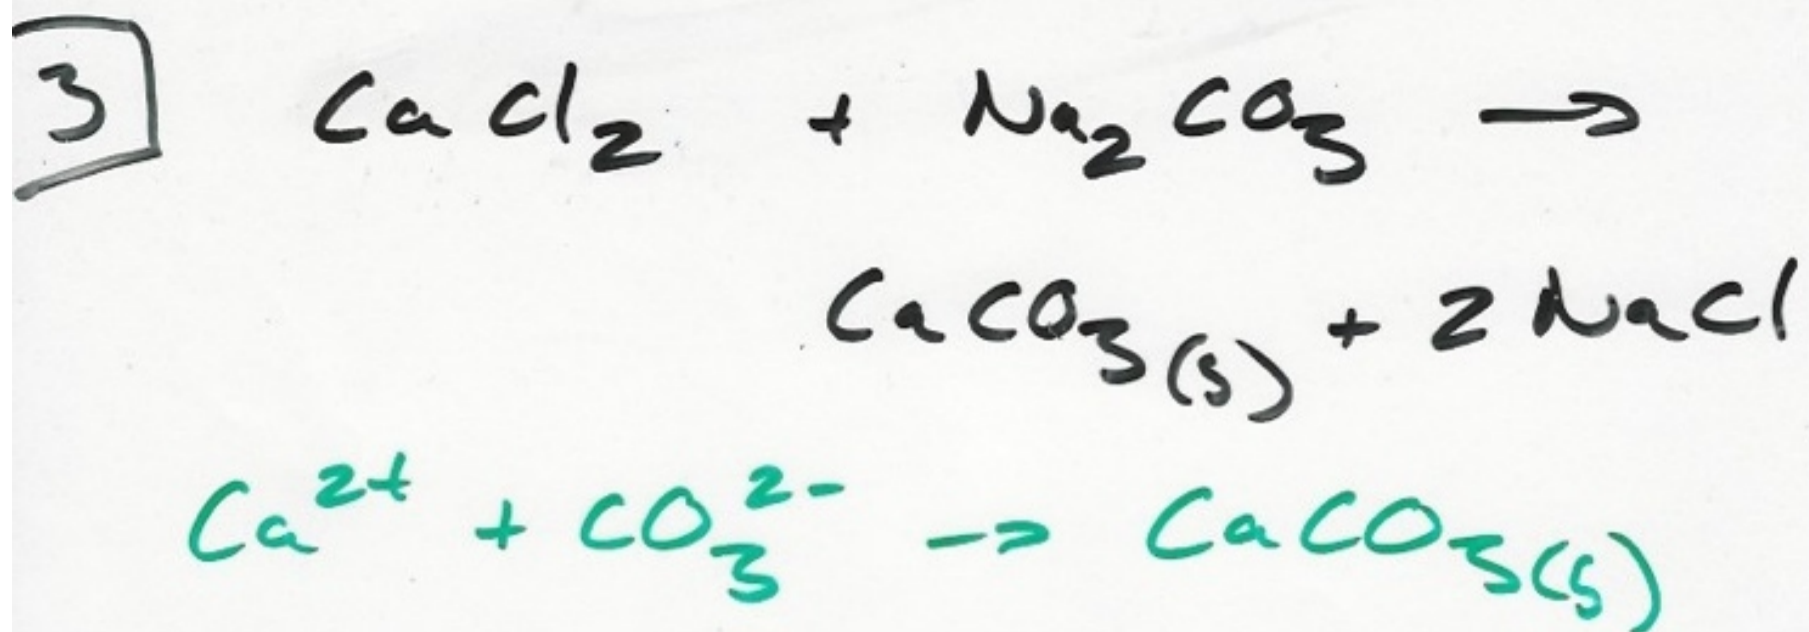 3 CaCl₂ + Na₂CO₃ →
CaCO₃(s) + 2 NaCl
Ca²⁺ + CO₃²⁻ → CaCO₃(s)